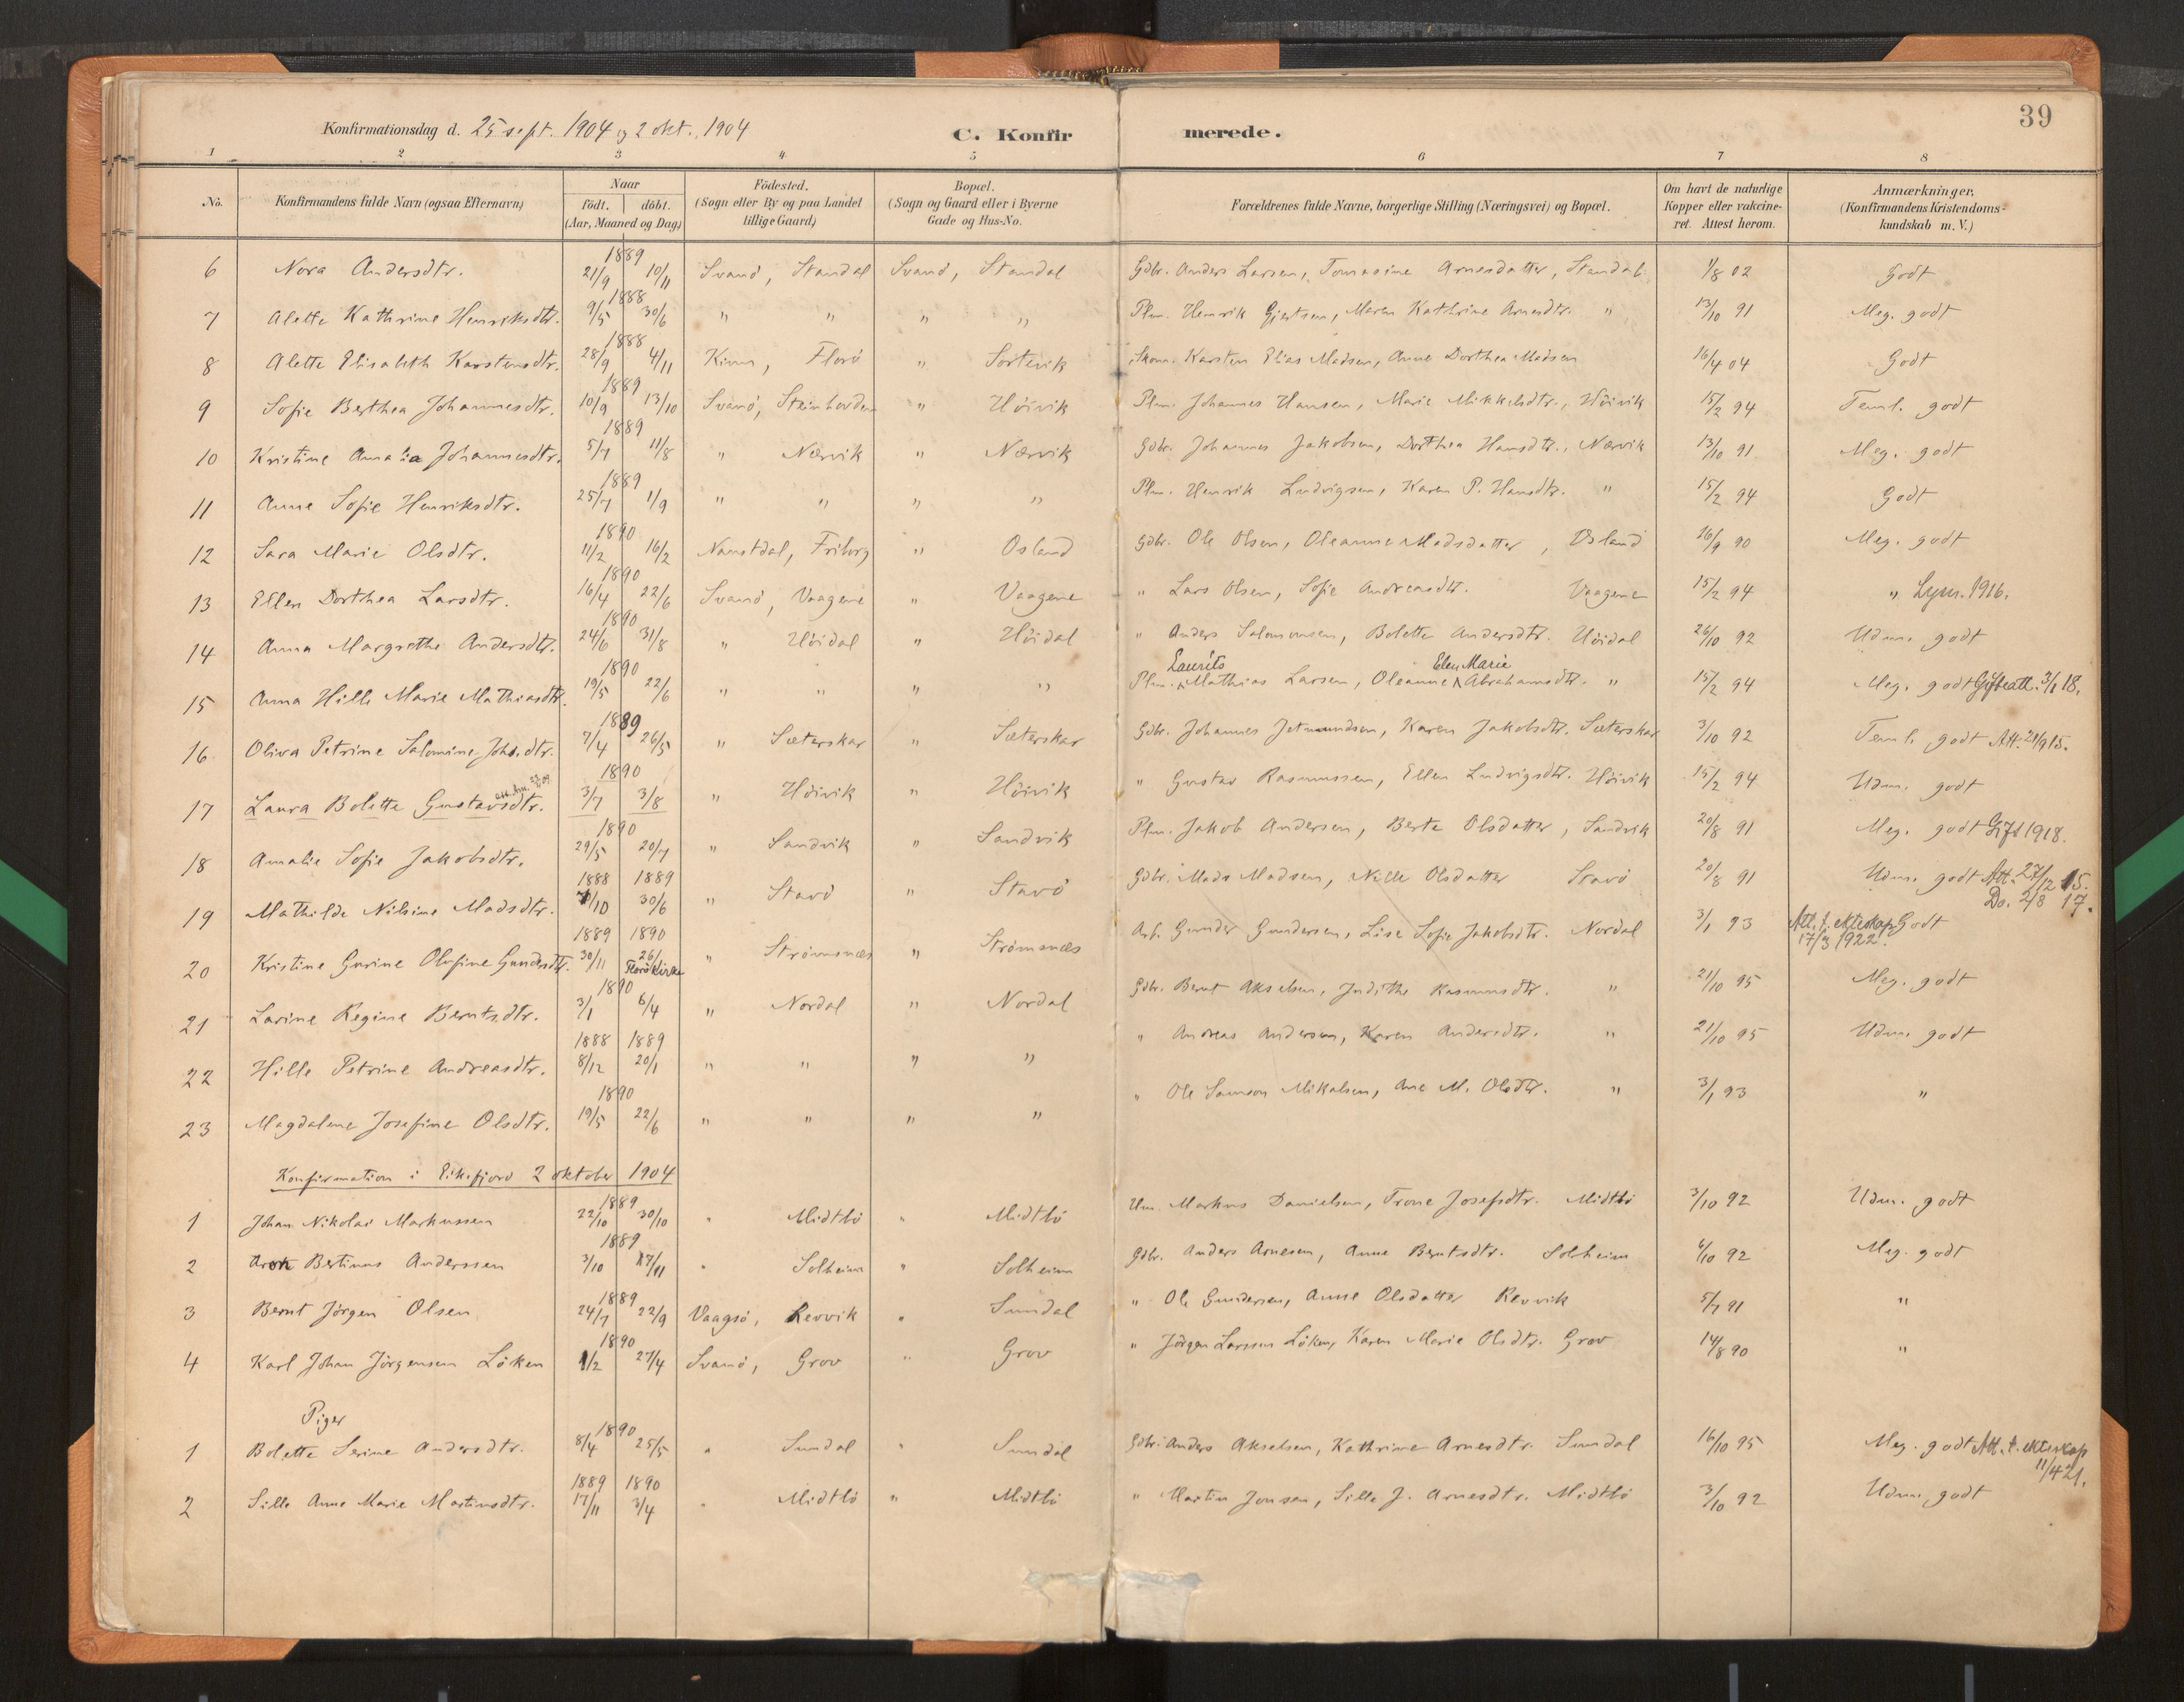 39
Konfirmationsdag d. 25 sept. 1904 og 2 okt. 1904 C. Konfirmerede.
1 2 3 4 5 6 7 8
No. Konfirmandens fulde Navn (ogsaa Efternavn) Naar födt. döbt. (Aar, Maaned og Dag) Födested. (Sogn eller By og paa Landet tillige Gaard) Bopæl. (Sogn og Gaard eller i Byerne Gade og Hus-No. Forældrenes fulde Navne, borgerlige Stilling (Næringsvei) og Bopæl. Om havt de naturlige Kopper eller vakcineret. Attest herom. Anmærkninger, (Konfirmandens Kristendomskundskab m. V.)
6 Nora Andersdtr. 1889 21/9 10/11 Svanö, Standal Svanö, Standal Gdbr. Anders Larsen, Tomasine Arnesdatter, Standal 1/8 02 Godt
7 Alette Kathrine Henriksdtr. 1888 9/5 30/6 " " " " Plm. Henrik Gjertsen, Maren Kathrine Arnesdtr. " 13/10 91 Meg. godt
8 Alette Elisabeth Karstensdtr. 1888 28/9 4/11 Kinn, Florö " Sortevik Skom. Karsten Elias Madsen, Anne Dorthea Madsen 16/4 04 Godt
9 Sofie Berthea Johannesdtr. 1889 10/9 13/10 Svanö, Steinhovden " Höivik Plm. Johannes Hansen, Marie Mikkelsdtr., Höivik 15/2 94 Teml. godt
10 Kristine Amalia Johannesdtr. 1889 5/7 11/8 " Nærvik " Nærvik Gdbr. Johannes Jakobsen, Dorthea Hansdtr., Nærvik 13/10 91 Meg. godt
11 Anne Sofie Henriksdtr. 1889 25/7 1/9 " " " " Plm. Henrik Ludvigsen, Karen P. Hansdtr. " 15/2 94 Godt
12 Sara Marie Olsdtr. 1890 11/2 16/2 Namsdal, Friborg " Osland Gdbr. Ole Olsen, Oleanne Madsdatter, Osland 26/9 90 Meg. godt
13 Ellen Dorthea Larsdtr. 1890 16/4 22/6 Svanö, Vaagene " Vaagene " Lars Olsen, Sofie Andreasdtr. Vaagene 15/2 94 " Lysn. 1916.
14 Anna Margrethe Andersdtr. 1890 24/6 31/8 " Höidal " Höidal " Anders Salomonsen, Bolette Andersdtr. Höidal 26/10 92 Udm. godt
Laurits Elen Marie
15 Anna Hille Marie Mathiasdtr. 1890 19/5 22/6 " " " " Plm. Mathias Larsen, Oleanne Abrahamsdtr. " 15/2 94 Meg. godt Gifteatt. 3/1 18.
16 Oliva Petrine Salomine Johs.dtr. 1889 7/4 26/5 " Sæterskar " Sæterskar Gdbr. Johannes Jetmundsen, Karen Jakobsdtr. Sæterskar 3/10 92 Teml. godt Att. 21/9 15.
17 Laura Bolette Gustavsdtr. 1890 3/7 3/8 " Höivik " Höivik " Gustav Rasmussen, Ellen Ludvigsdtr. Höivik 15/2 94 Udm. godt
18 Amalie Sofie Jakobsdtr. 1890 29/5 20/7 " Sandvik " Sandvik Plm. Jakob Andersen, Berte Olsdatter, Sandvik 20/8 91 Meg. godt Gift 1918.
19 Mathilde Nilsine Madsdtr. 1888 1889 7/10 30/6 " Stavö " Stavö Gdbr. Mads Madsen, Nille Olsdatter Stavö 20/8 91 Udm. godt Att. 27/12 15.
Do. 2/8 17.
20 Kristine Gurine Olufine Gundersdtr. 1889 1890 30/11 26/1 Florö Kirke " Strömsnæs " Strömsnæs Arb. Gunder Gundersen, Lise Sofie Jakobsdtr. Nordal 3/1 93 Att. t. ekteskap Godt
17/3 1922.
21 Larine Regine Berntsdtr. 1890 3/1 6/4 " Nordal " Nordal Gdbr. Bernt Akselsen, Judithe Rasmusdtr. " 21/10 95 Meg. godt
22 Hille Petrine Andreasdtr. 1888 1889 8/12 20/1 " " " " " Andreas Andersen, Karen Andersdtr. " 21/10 95 Udm. godt
23 Magdalene Josefine Olsdtr. 1890 19/5 22/6 " " " " " Ole Samson Mikalsen, Ane M. Olsdtr. " 3/1 93 "
Konfirmation i Eikefjord 2 oktober 1904
1 Johan Nikolai Markussen 1889 22/10 30/10 " Midtbö " Midtbö Um. Markus Danielsen, Trone Josefsdtr. Midtbö 3/10 92 Udm. godt
2 Aron Bertinus Anderssen 1889 3/10 17/11 " Solheim " Solheim Gdbr. Anders Arnesen, Anne Berntsdtr. Solheim 6/10 92 Meg. godt
3 Bernt Jörgen Olsen 1889 24/7 22/9 Vaagsö, Revvik " Sundal " Ole Gundersen, Anne Olsdatter Revvik 5/7 91 "
4 Karl Johan Jörgensen Löken 1890 1/2 27/4 Svanö, Grov " Grov " Jörgen Larssen Löken, Karen Marie Olsdtr. Grov 14/8 90 "
Piger
1 Bolette Serine Andersdtr. 1890 8/4 25/5 " Sundal " Sundal Gdbr. Anders Akselsen, Kathrine Arnesdtr. Sundal 16/10 95 Meg. godt Att. t. ekteskap
11/4 21.
2 Sille Anne Marie Martinsdtr. 1889 1890 17/11 3/4 " Midtbö " Midtbö " Martin Jonsen, Sille J. Arnesdtr. Midtbö 3/10 92 Udm. godt